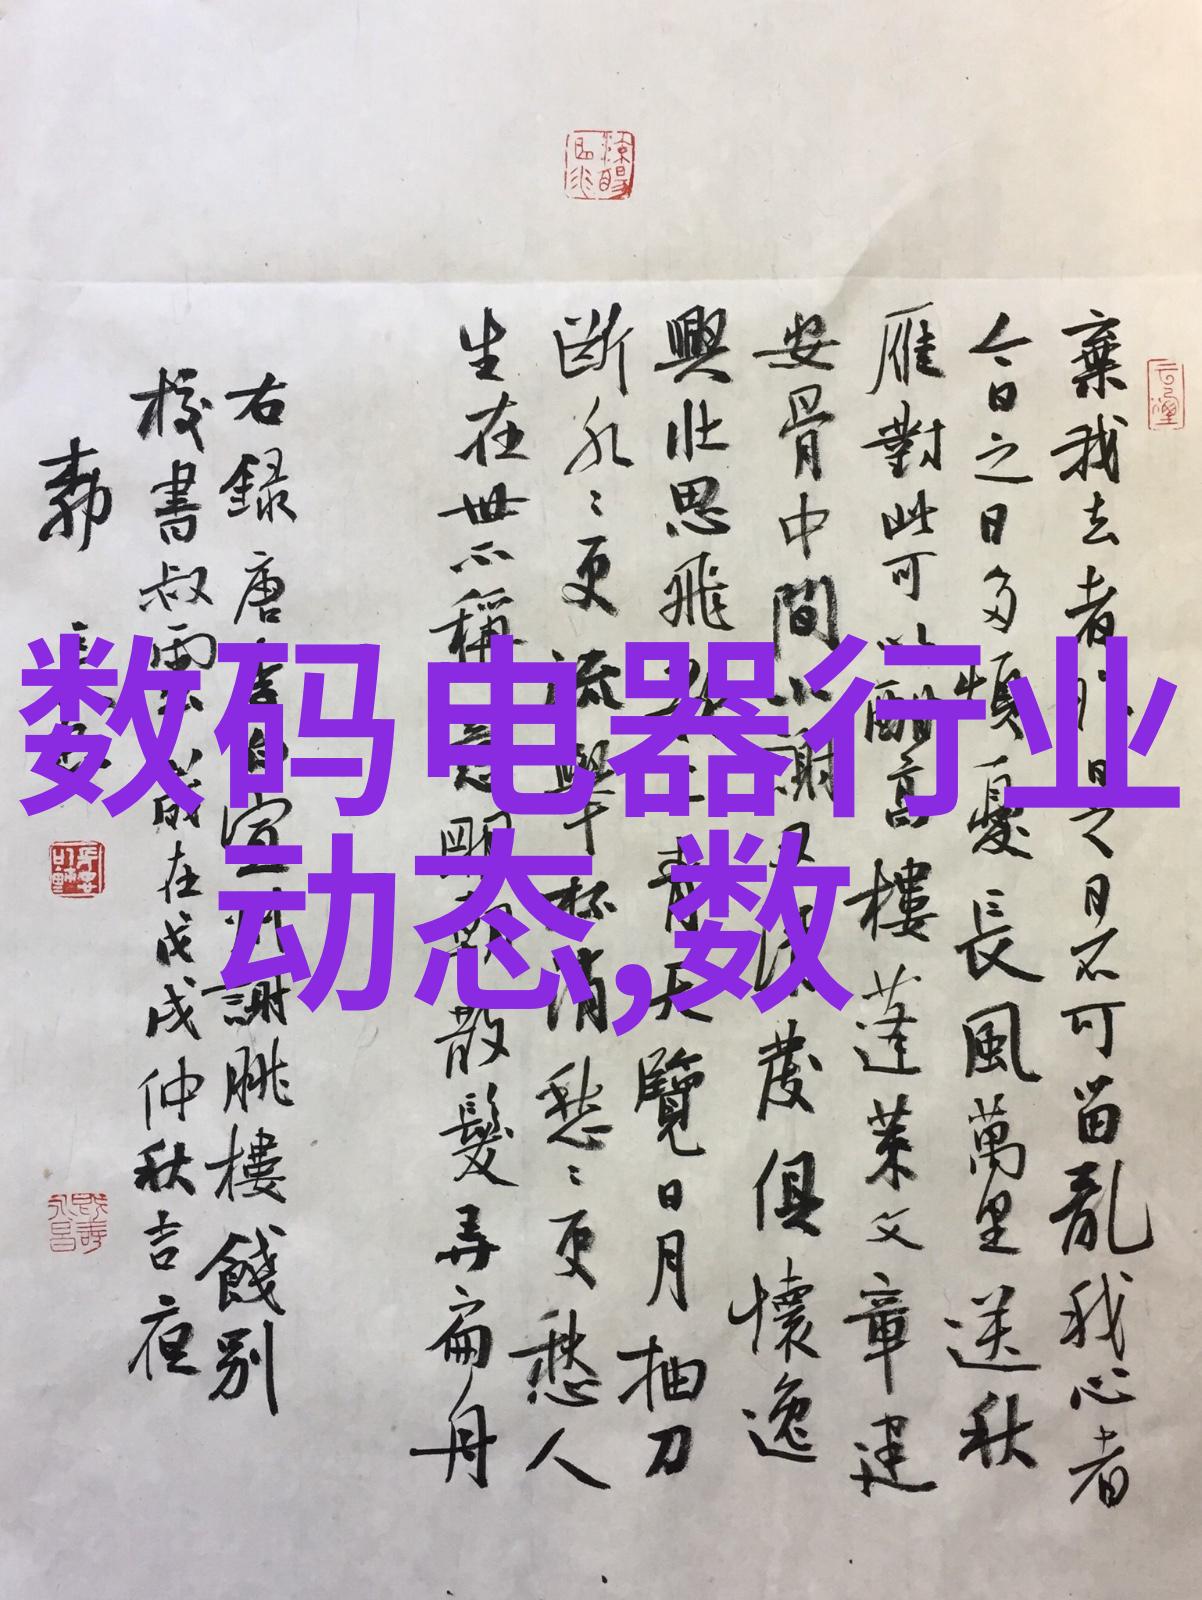 数码电器行业
动态,数
棄我去者昨日之日不可留亂我心者
今日之日多煩憂長風萬里送秋
雁對此可以酣高樓蓬萊文章建
安骨中間小謝又清發俱懷逸
興壯思飛欲上青天覽日月抽刀
斷水〻更流舉杯消愁〻更愁人
生在世不稱意明朝散髮弄扁舟
右錄唐李白宣州謝朓樓餞別
校書叔雲歲在戊戌仲秋吉夜